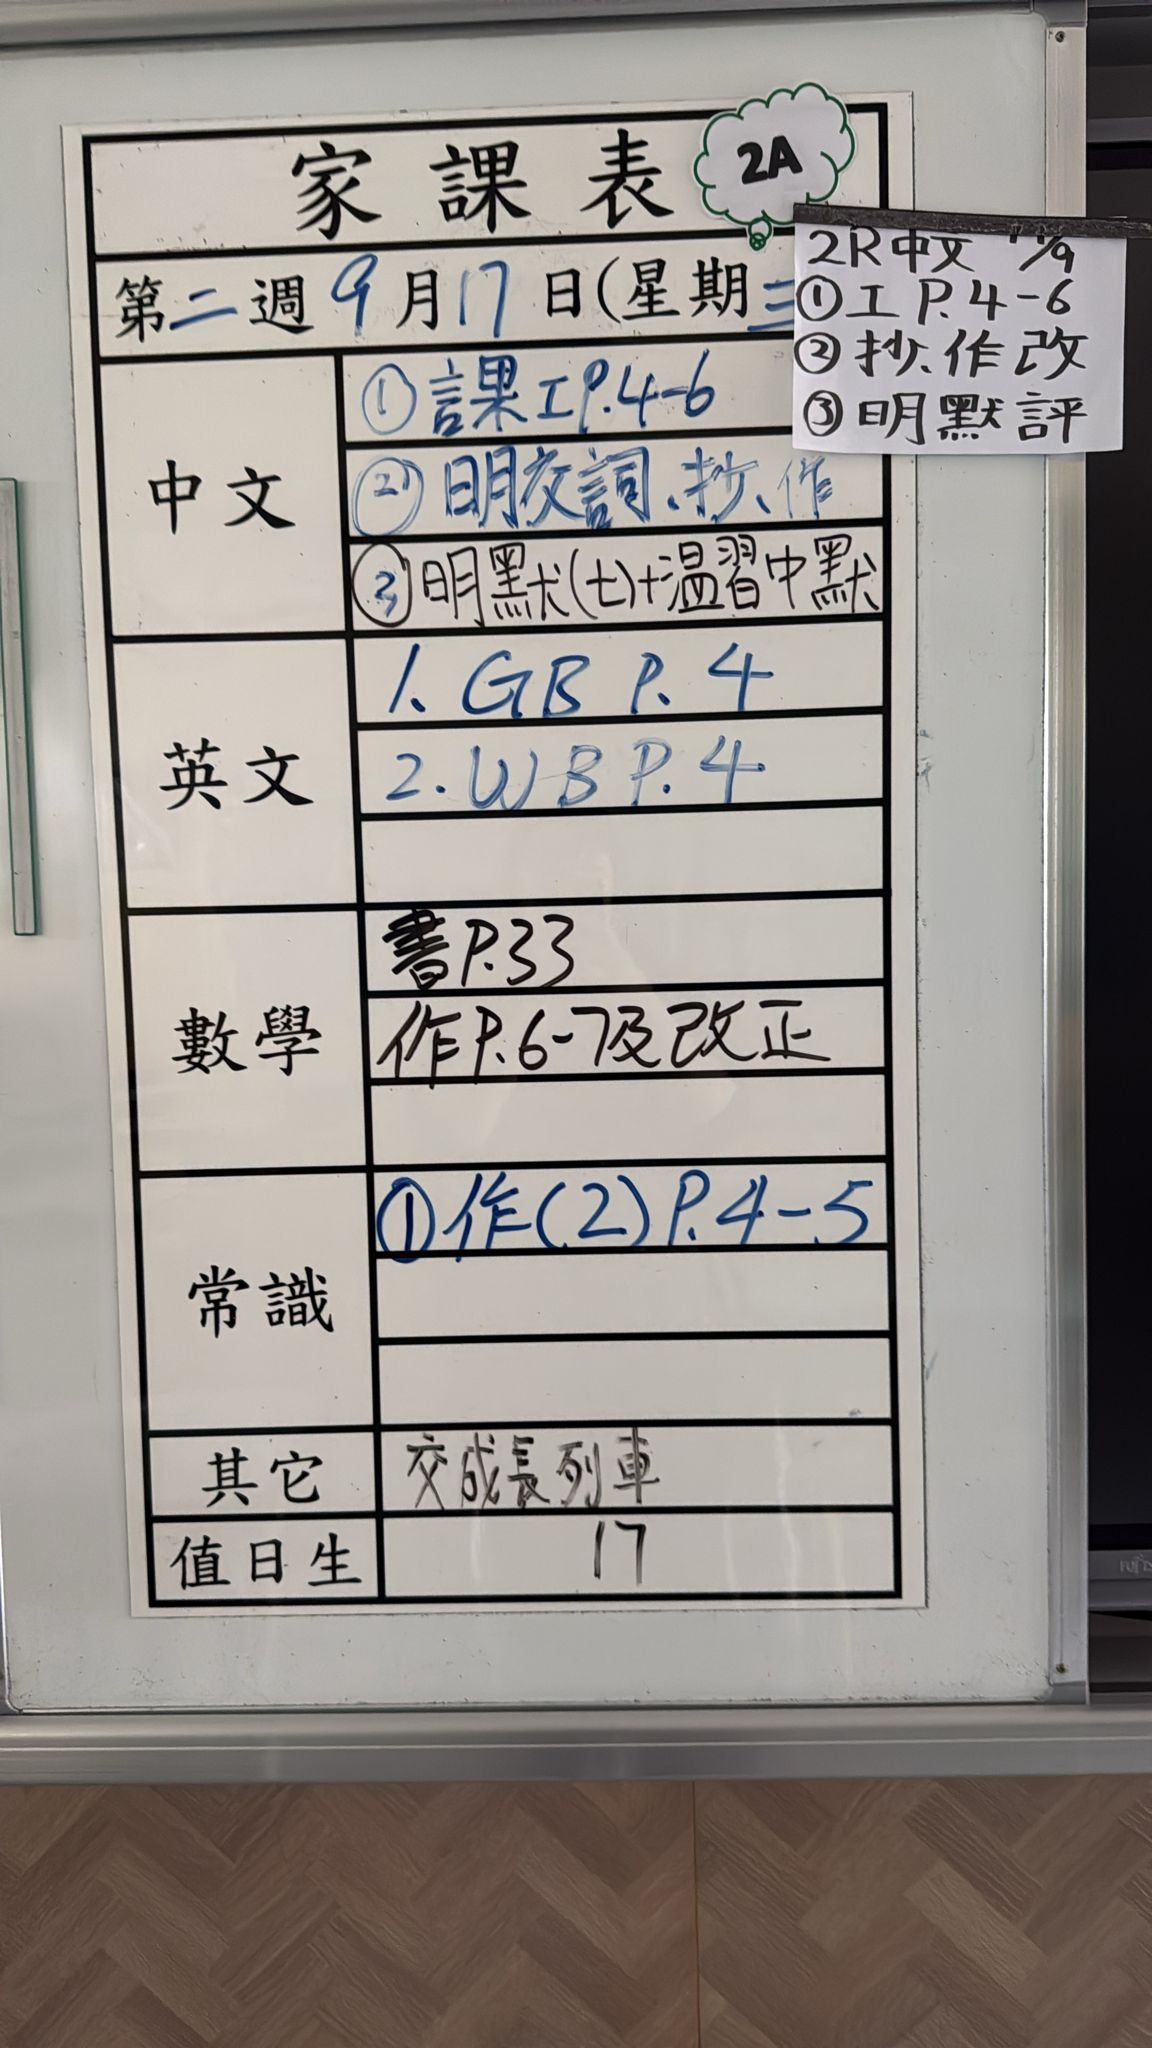 家課表
2A
第二週9月17日(星期三
2R中文
①工P.4-6
②抄.作改
③明默評
中文
①課工P.4-6
②明交詞、抄、作
③明默(七)+溫習中默
英文
1. GB P. 4
2. WB P. 4
數學
書P.33
作P.6-7及改正
常識
①作(2)P.4-5
其它
交成長列車
值日生
17